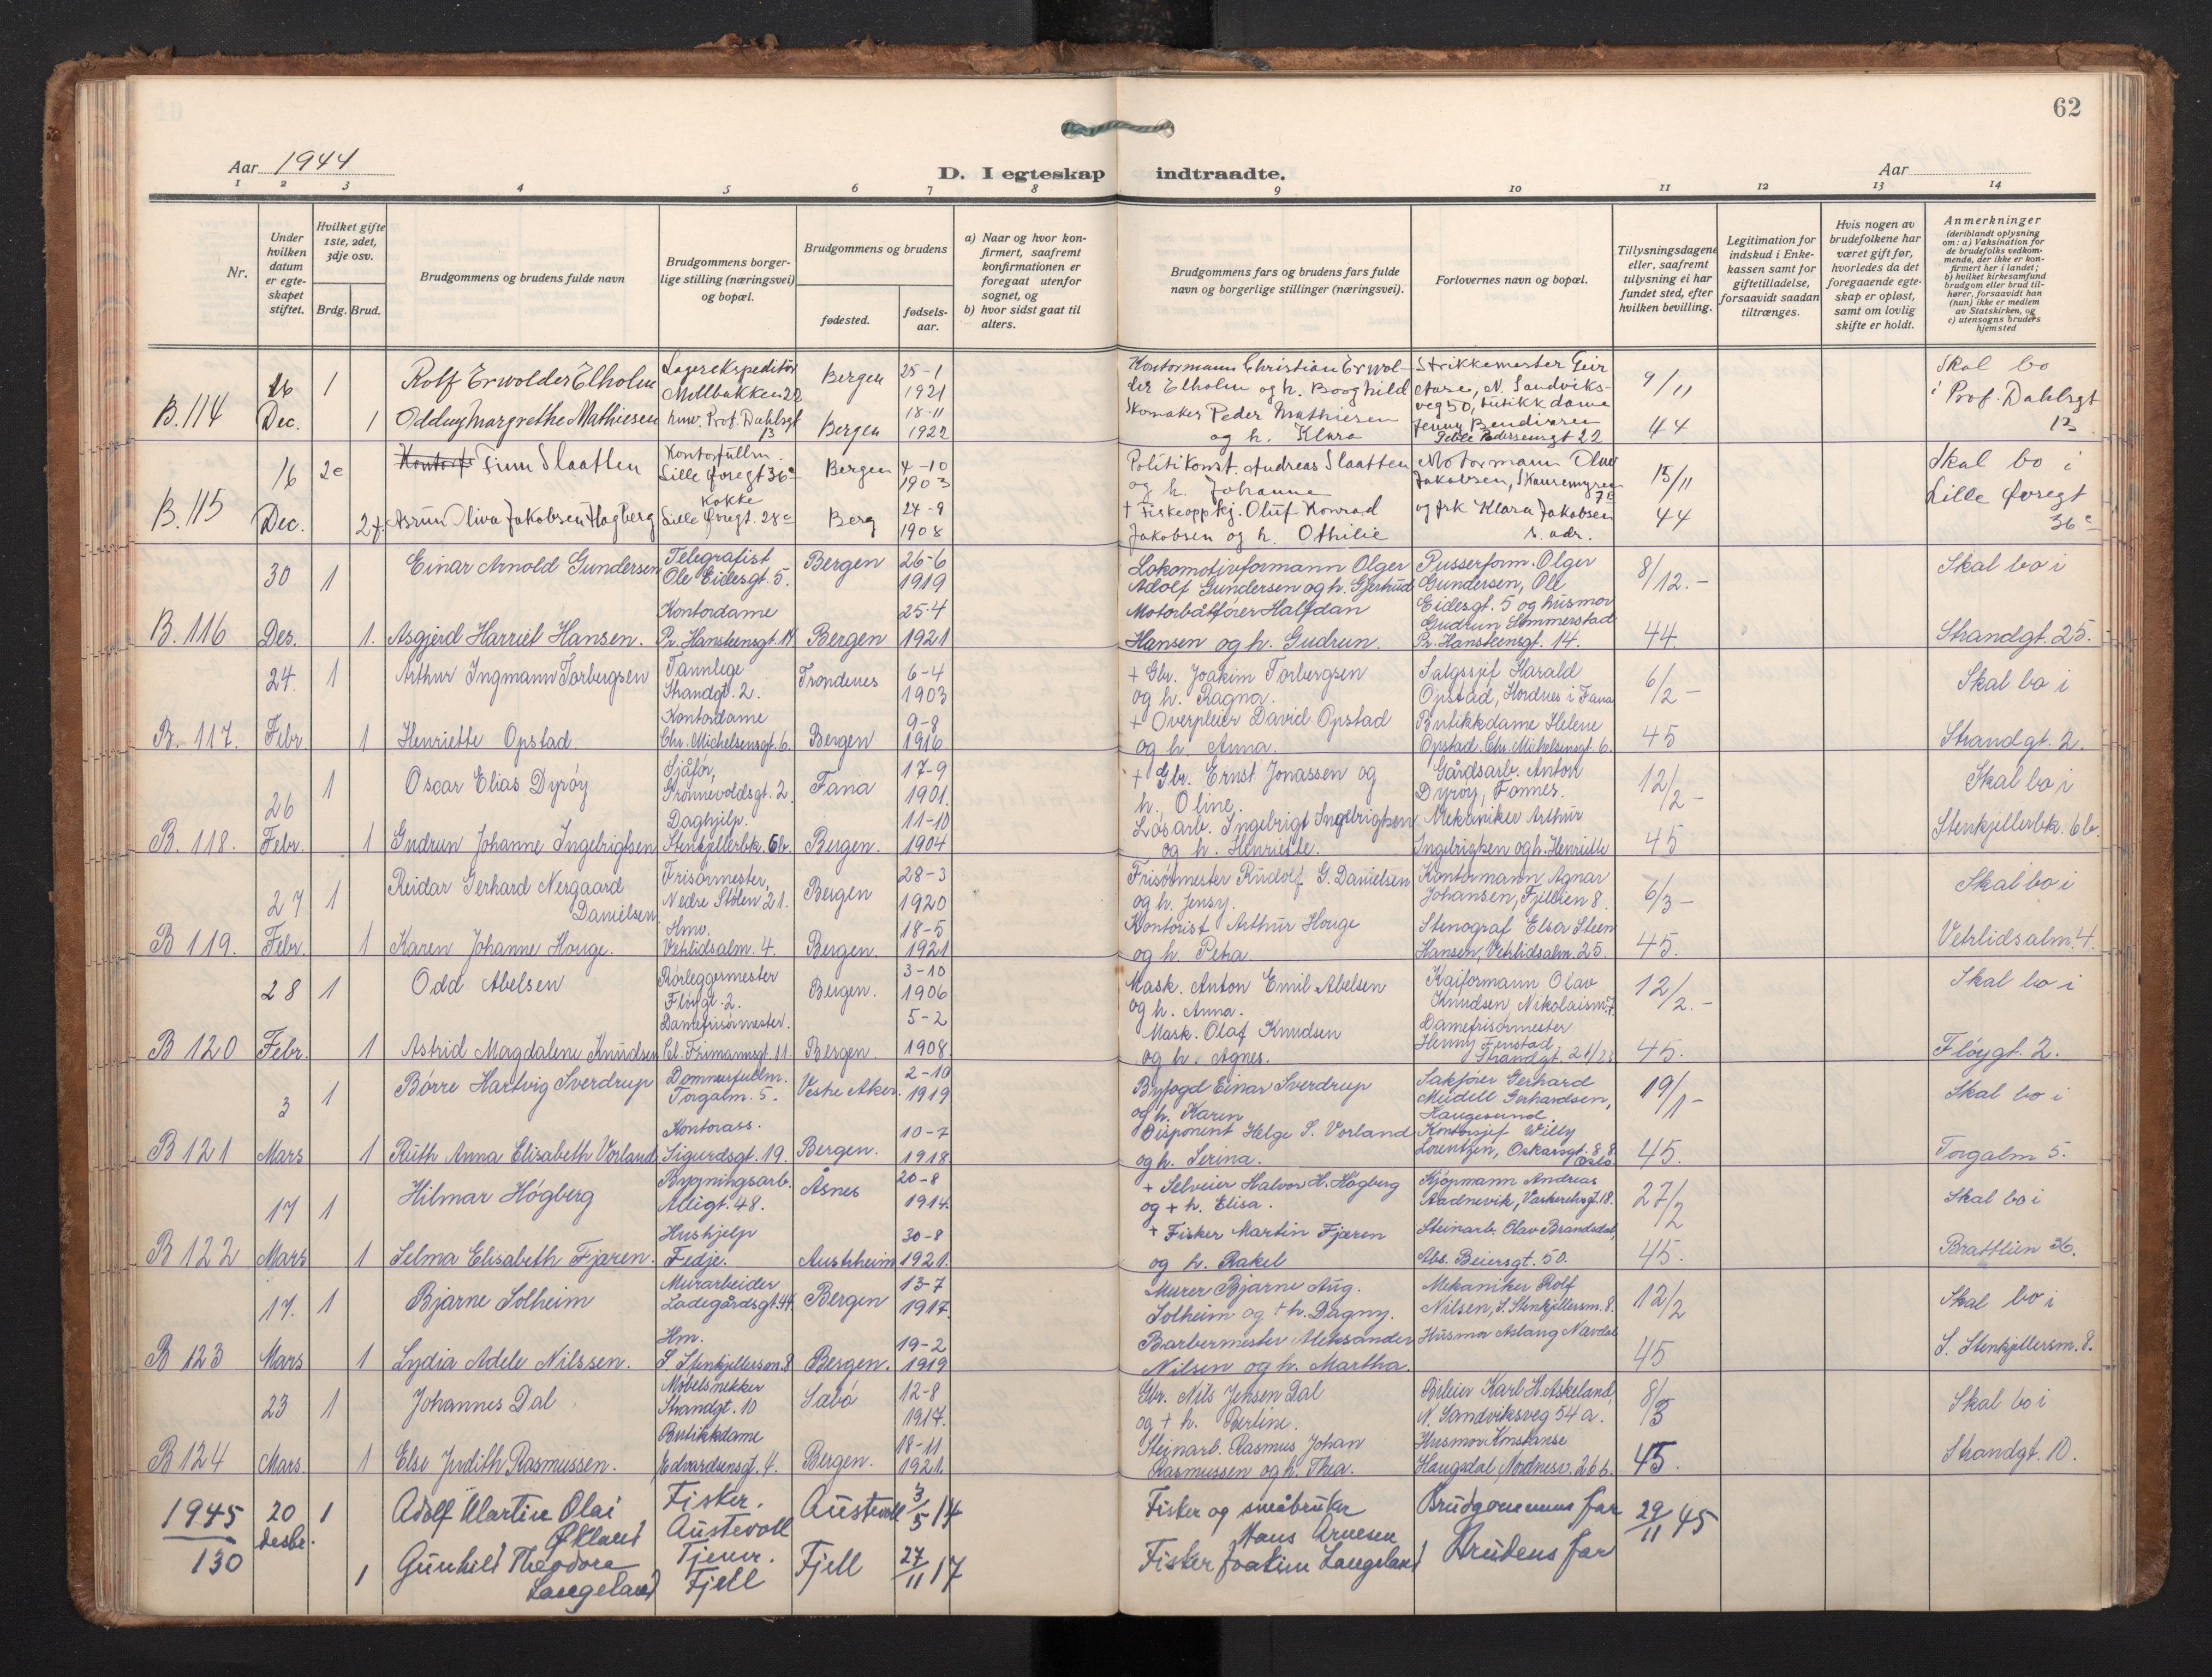 62
Aar 1944
D. I egteskap indtraadte.
Aar
1 2 3 4 5 6 7 8 9 10 11 12 13 14
Nr.
Under hvilken datum er egteskapet stiftet.
Hvilket gifte 1ste, 2det, 3dje osv.
Brdg. Brud.
Brudgommens og brudens fulde navn
Brudgommens borgerlige stilling (næringsvei) og bopæl.
Brudgommens og brudens
fødested.
fødselsaar.
a) Naar og hvor konfirmert, saafremt konfirmationen er foregaat utenfor sognet, og
b) hvor sidst gaat til alters.
Brudgommens fars og brudens fars fulde navn og borgerlige stillinger (næringsvei).
Forlovernes navn og bopæl.
Tillysningsdagene eller, saafremt tillysning ei har fundet sted, efter hvilken bevilling.
Legitimation for indskud i Enkekassen samt for giftetilladelse, forsaavidt saadan tiltrænges.
Hvis nogen av brudefolkene har været gift før, hvorledes da det foregaaende egteskap er opløst, samt om lovlig skifte er holdt.
Anmerkninger (deriblandt oplysning om: a) Vaksination for de brudefolks vedkommende, der ikke er konfirmert her i landet; b) hvilket kirkesamfund brudgom eller brud tilhører, forsaavidt han (hun) ikke er medlem av Statskirken, og c) utensogns bruders hjemsted
B. 114 16 Dec. 1 Rolf Erwolder Elholm Lagerekspeditør Møllbakken 22 Bergen 25-1 1921
Kontormann Christian Erwolder Elholm og h. Borghild
Strikkemester Geir Aase, N. Sandviksveg 50, butikkdame
9/11
Skal bo i Prof. Dahlsgt 13
1 Oddny Margrethe Mathiesen hmv. Prof. Dahlsgt 13 Bergen 18-11 1922
Skomaker Peder Mathiesen og h. Klara
Jenny Bendixsen Peter Pedersensgt 22
44
B. 115 16 Dec. 2e Finn Slaatten Kontorfullm. Lille Øvregt 36c Bergen 4-10 1903
Politikonst. Andreas Slaatten og h. Johanne
Motormann Olav Jakobsen, Skuremyren 7
15/11
Skal bo i Lille Øvregt 36c
2f. Asrun Oliva Jakobsen Hagberg Kokke Lille Øvregt. 28c Berg 27-9 1908
+ Fiskeoppkj. Oluf Konrad Jakobsen og h. Othilie
og frk Klara Jakobsen s. adr.
44
B. 116 30 Des. 1 Einar Arnold Gundersen Telegrafist Ole Eidesgt. 5. Bergen 26-6 1919
Lokomotivformann Olger Adolf Gundersen og h. Gjertrud
Pusserform. Olger Gundersen, Ole Eidesgt. 5 og husmor
8/12.-
Skal bo i
1. Asgjerd Harriet Hansen. Kontordame Pr. Hansteensgt. 14 Bergen 25-4 1921
Motorbåtfører Halfdan Hansen og h. Gudrun.
Gudrun Sommerstad Pr. Hansteensgt. 14.
44.
Strandgt. 25.
B. 117. 24. Febr. 1 Arthur Ingmann Torbergsen Tannlege Strandgt. 2. Trondenes 6-4 1903
+ Gbr. Joakim Torbergsen og h. Ragna.
Salgssjef Harald Opstad, Hordnes i Fana
6/2 -
Skal bo i
1 Henriette Opstad Kontordame Chr. Michelsensgt. 6. Bergen 9-8 1916
+ Overpleier David Opstad og h. Anna.
Butikkdame Helene Opstad. Chr. Michelsensgt. 6.
45
Strandgt. 2.
B. 118. 26 Febr. 1 Oscar Elias Dyrøy Sjåfør, Grønnevoldsgt. 2. Fana 17-9 1901.
+ Gbr. Ernst Jonassen og h. Oline.
Gårdsarb. Anton Dyrøy, Fonnes.
12/2 -
Skal bo i
1 Gudrun Johanne Ingebrigtsen Daghjelp. Stenkjellerbk. 6b. Bergen. 11-10 1904
Løsarb. Ingebrigt Ingebrigtsen og h. Henriette.
Mekaniker Arthur Ingebrigtsen og h. Henriette
45
Stenkjellerbk. 6b.
B 119. 27 Febr. 1 Reidar Gerhard Nergaard Danielsen Frisørmester, Nedre Stølen 21. Bergen 28-3 1920
Frisørmester Rudolf G. Danielsen og h. Jensy.
Kontormann Agnar Johansen, Fjellien 8.
6/3 -
Skal bo i
1 Karen Johanne Houge. Hmv. Vetrlidsalm. 4. Bergen. 18-5 1921
Kontorist Arthur Houge og h. Petra
Stenograf Elsa Steen Hansen, Vetrlidsalm. 25.
45.
Vetrlidsalm. 4.
B 120 28 Febr. 1 Odd Abelsen Rørleggermester Fløygt. 2. Bergen. 3-10 1906
Mask. Anton Emil Abelsen og h. Anna.
Kaiformann Olav Knudsen, Nikolaism. 7.
12/2.-
Skal bo i
1 Astrid Magdalene Knudsen Damefrisørmester. Cl. Frimannsgt. 11. Bergen. 5-2 1908.
Mask. Olaf Knudsen og h. Agnes.
Damefrisørmester Henny Fenstad, Strandgt. 21/23
45.
Fløygt. 2.
B 121 3 Mars 1 Børre Hartvig Sverdrup Dommerfullm. Torgalm. 5. Vestre Aker. 2-10 1919
Byfogd Einar Sverdrup og h. Karen
Sakfører Gerhard Meidell Gerhardsen, Haugesund.
19/1 -
Skal bo i
1 Ruth Anna Elisabeth Vorland Kontorass. Sigurdsgt. 19. Bergen. 10-7 1918.
Disponent Helge S. Vorland og h. Serina.
Kontorsjef Willy Lorentzen, Oskarsgt. 88. Oslo
45.
Torgalm 5.
B 122 17 Mars 1 Hilmar Høgberg Bygningsarb. Alligt. 48. Åsnes 20-8 1914.
+ Selveier Halvor H. Høgberg og + h. Elisa.
Kjøpmann Andreas Aadnevik, Vaskerelvsgt. 18.
27/2
Skal bo i
1 Selma Elisabeth Fjæren. Hushjelp Fedje. Austrheim 30-8 1921.
+ Fisker Martin Fjæren og h. Rakel
Steinarb. Olav Brandsdal, Abs. Beiersgt. 50.
45.
Brattlien 36.
B 123 17. Mars 1 Bjarne Solheim Murarbeider Ladegårdsgt. 44. Bergen 13-7 1917.
Murer Bjarne Aug. Solheim og + h. Dagny.
Mekaniker Rolf Nilsen, S. Stenkjellersm. 8.
12/2
Skal bo i
1 Lydia Adele Nilssen. Hm. S. Stenkjellersm. 8 Bergen. 19-2 1919
Barbermester Aleksander Nilsen og h. Martha.
Husmor Aslaug Nævdal
45
S. Stenkjellersm. 8.
B 124 23 Mars. 1 Johannes Dal Møbelsnekker Strandgt. 10 Sæbø 12-8 1917.
Gbr. Nils Jensen Dal og + h. Berline.
Bileier Karl H. Askeland, N. Sandviksveg 54 a.
8/3
Skal bo i
1 Else Judith Rasmussen. Butikkdame Edvardsensgt. 4. Bergen. 18-11 1921.
Steinarb. Rasmus Johan Rasmussen og h. Thea.
Husmor Konstanse Haugsdal, Nordnesv. 26 b.
45.
Strandgt. 10.
1945 130 20 desbr. 1 Adolf Martin Olai Økland Fisker. Austevoll Austevoll 3/5 14
Fisker og småbruker Hans Arnesen
Brudgommens far
29/11 45
1 Gunhild Theodora Langeland Tjener. Fjell Fjell 27/11 17
Fisker Joakim Langeland
Brudens far